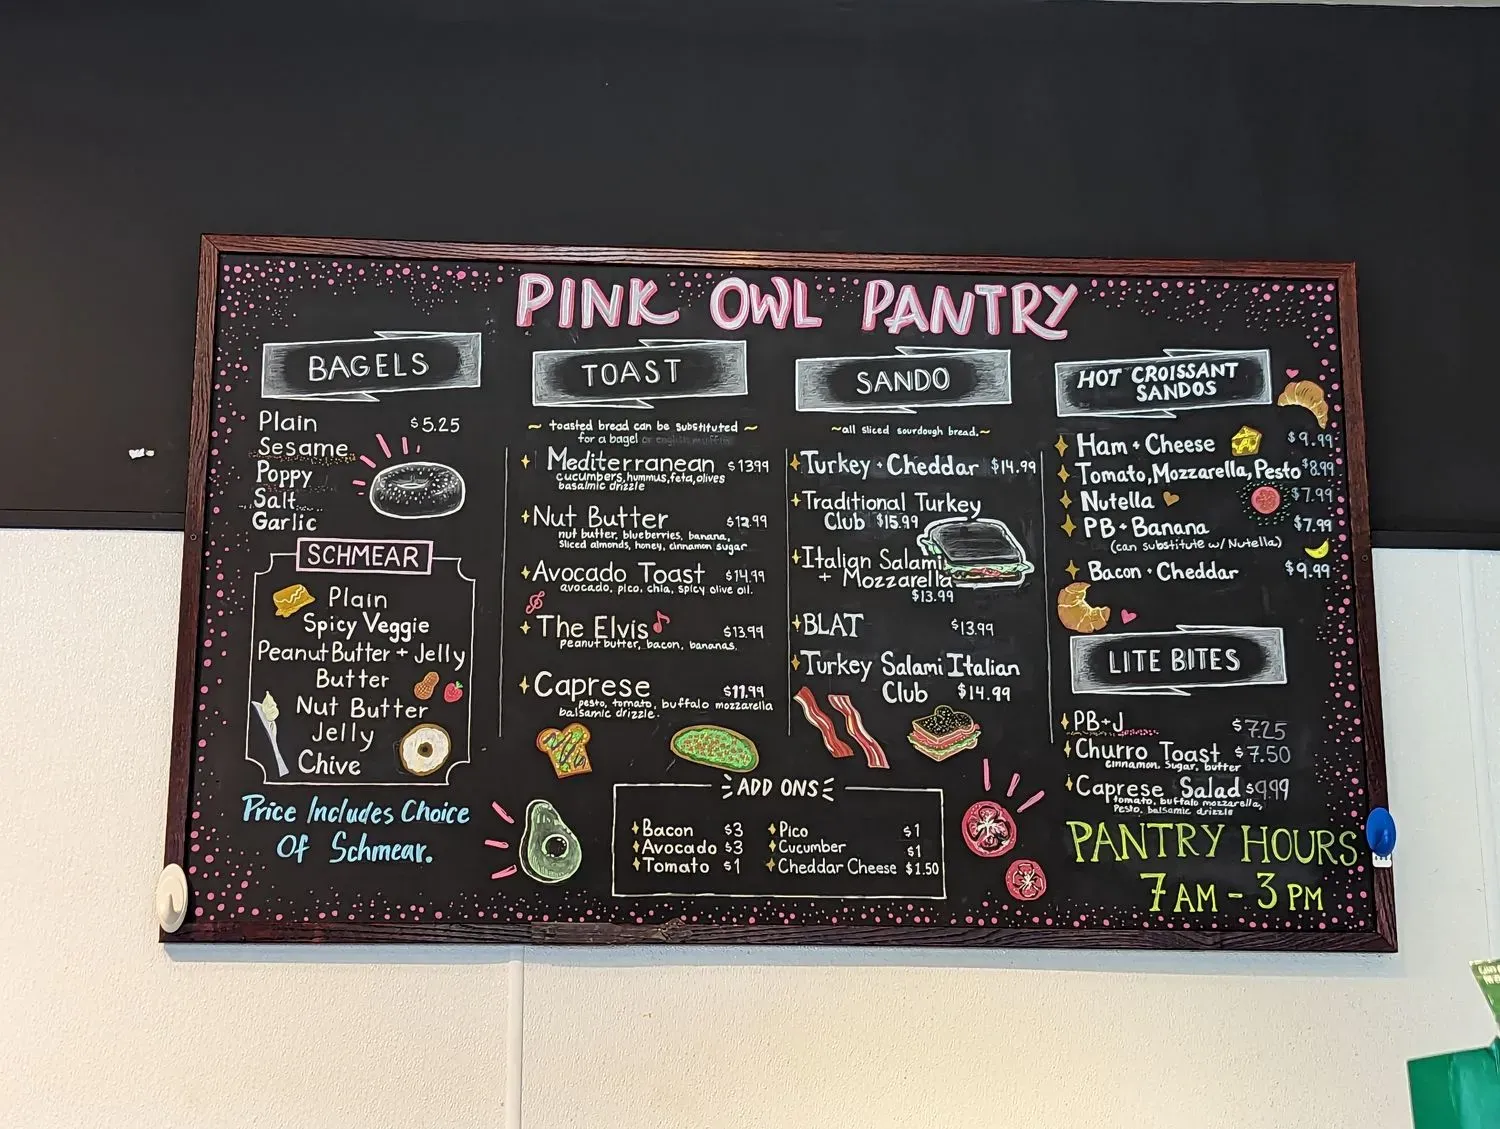 PINK OWL PANTRY
BAGELS
Plain $5.25
Sesame
Poppy
Salt
Garlic
SCHMEAR
Plain
Spicy Veggie
Peanut Butter + Jelly
Butter
Nut Butter
Jelly
Chive
Price Includes Choice
Of Schmear.
TOAST
~ toasted bread can be substituted ~
for a bagel or english muffin
Mediterranean $13.99
cucumbers, hummus, feta, olives
basalmic drizzle
Nut Butter $12.99
nut butter, blueberries, banana,
sliced almonds, honey, cinnamon sugar
Avocado Toast $14.99
avocado, pico, chia, spicy olive oil.
The Elvis $13.99
peanut butter, bacon, bananas.
Caprese $11.99
pesto, tomato, buffalo mozzarella
balsamic drizzle.
SANDO
~all sliced sourdough bread.~
Turkey + Cheddar $14.99
Traditional Turkey
Club $15.99
Italian Salami
+ Mozzarella
$13.99
BLAT $13.99
Turkey Salami Italian
Club $14.99
ADD ONS
Bacon $3
Avocado $3
Tomato $1
Pico $1
Cucumber $1
Cheddar Cheese $1.50
HOT CROISSANT
SANDOS
Ham + Cheese $9.99
Tomato, Mozzarella, Pesto $8.99
Nutella $7.99
PB + Banana $7.99
(can substitute w/ Nutella)
Bacon + Cheddar $9.99
LITE BITES
PB+J $7.25
Churro Toast $7.50
cinnamon, sugar, butter
Caprese Salad $9.99
tomato, buffalo mozzarella,
Pesto, balsamic drizzle
PANTRY HOURS
7 AM - 3 PM